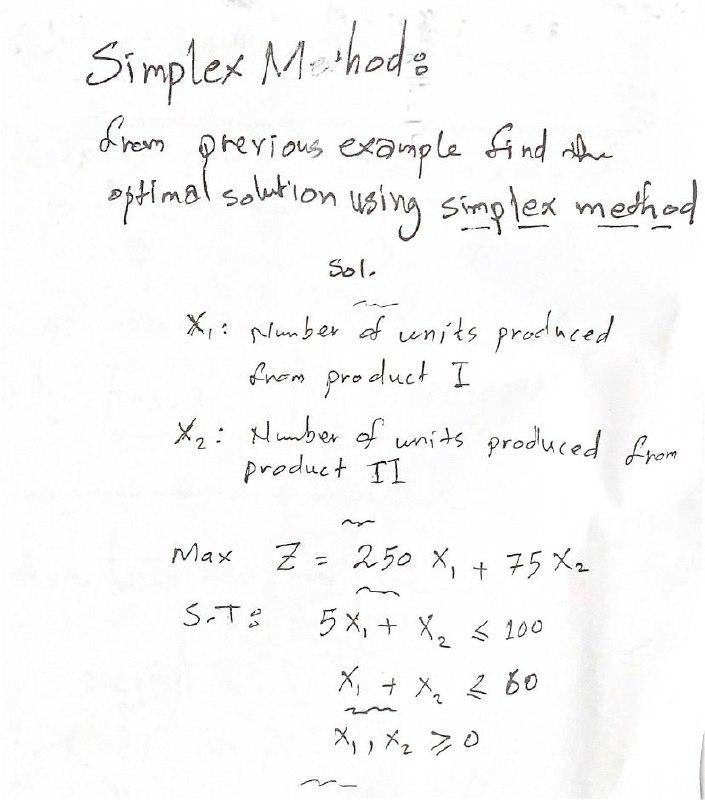 Simplex Method:
from previous example find the
optimal solution using simplex method
Sol.
X₁: Number of units produced
from product I
X₂: Number of units produced from
product II
Max Z = 250 X₁ + 75 X₂
S.T: 5X₁ + X₂ ≤ 100
X₁ + X₂ ≤ 60
X₁, X₂ ≥ 0